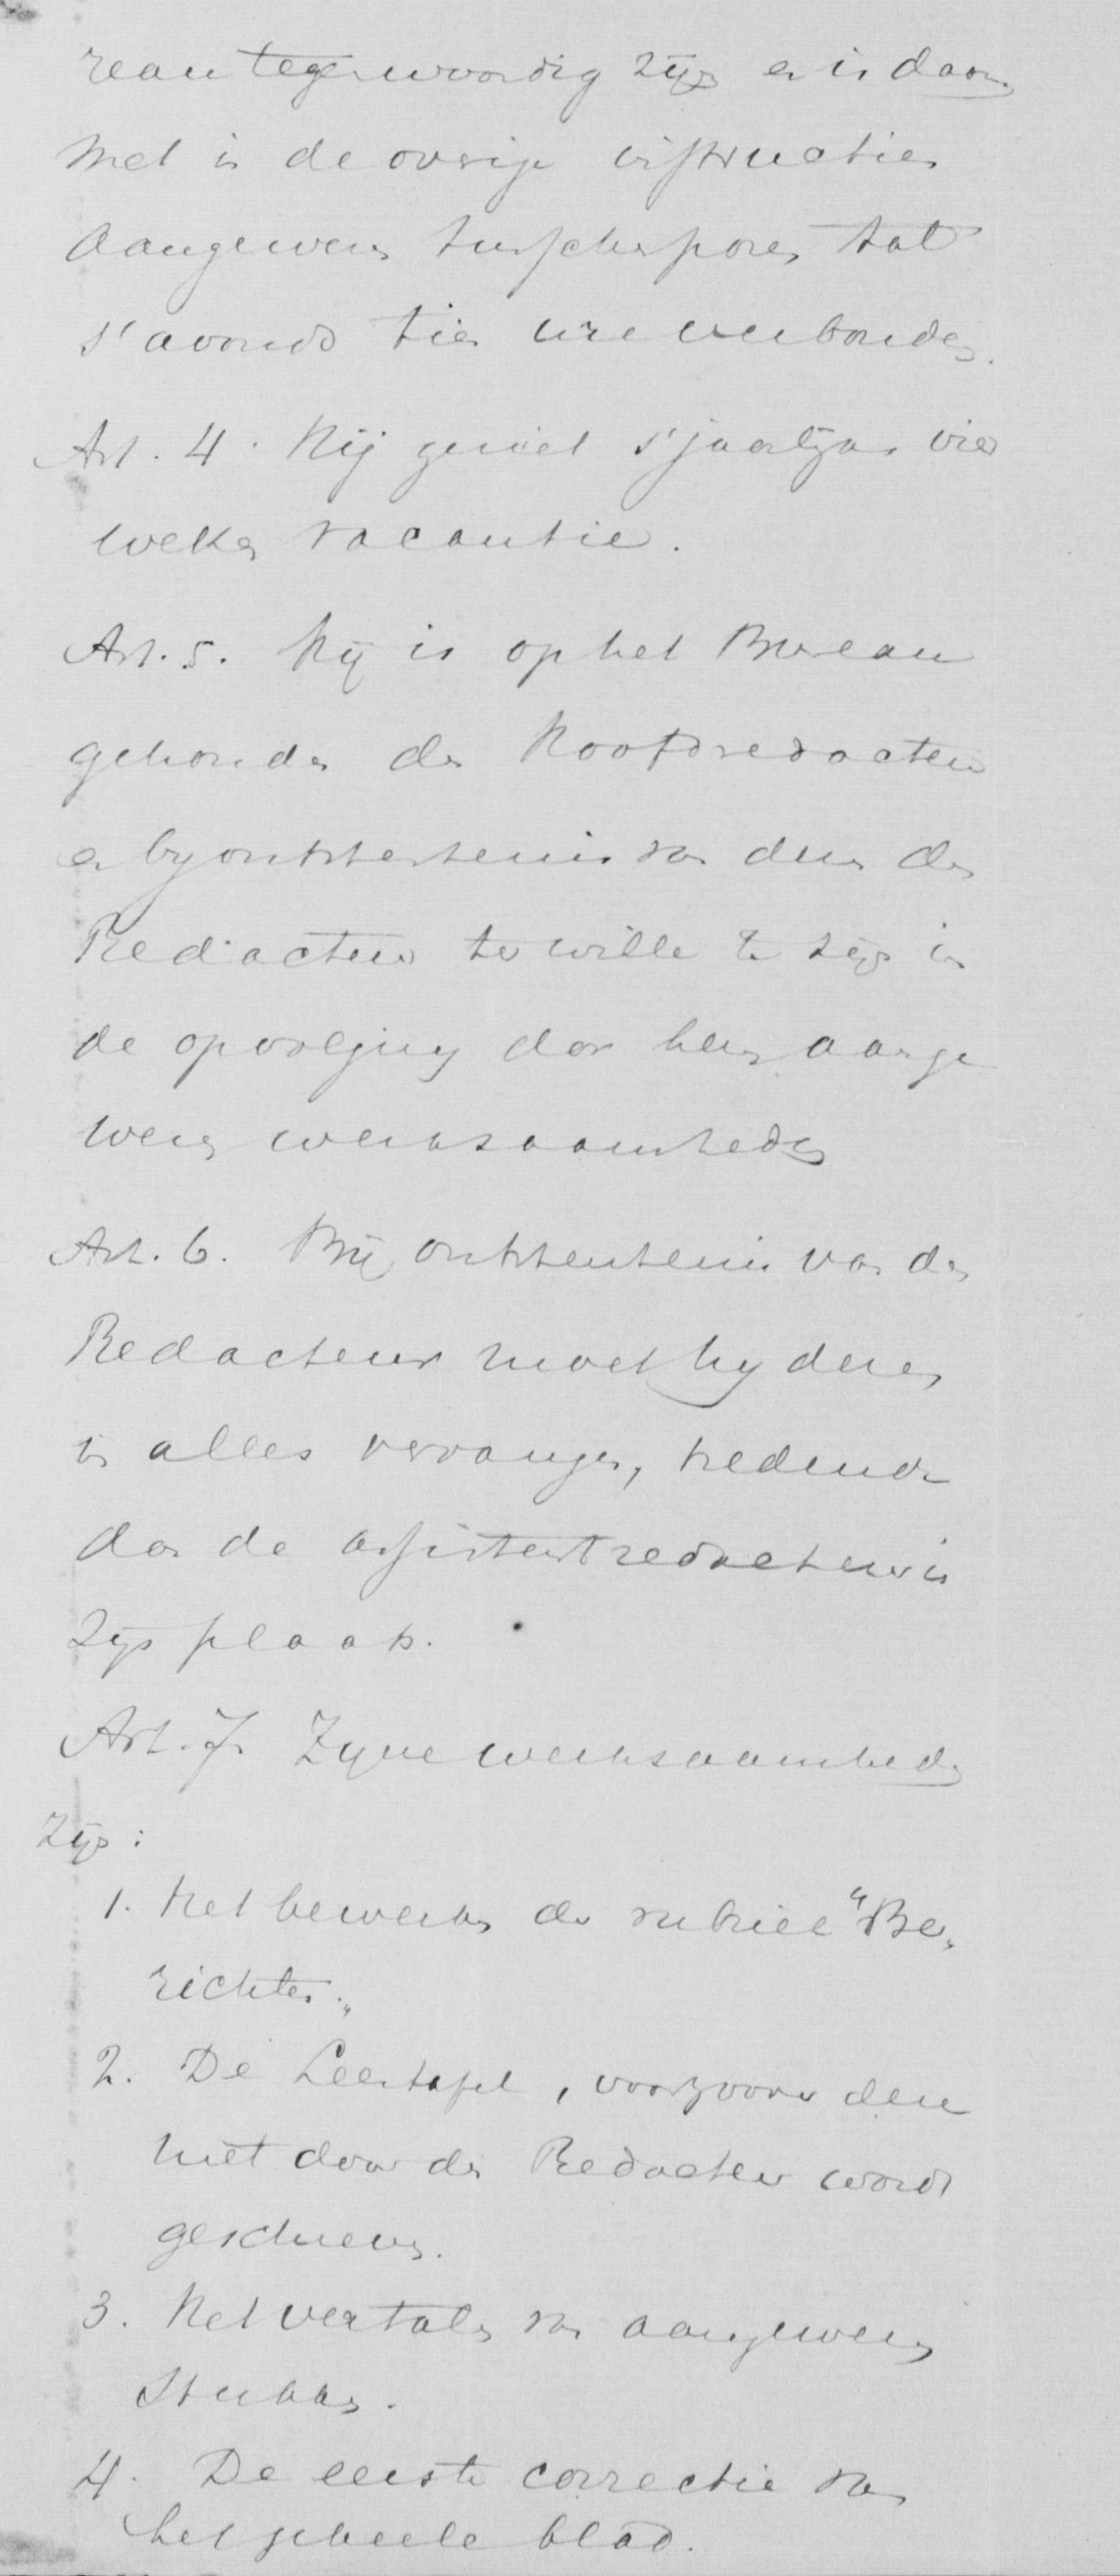 reau tegenwoordig zijn en is daar
met in de overige instructien
aangewezen tusschenpozen tot
s'avonds tien ure verbonden.
Art. 4. Hij geniet s'jaarlijks vier
weken vacantie.
Art. 5. Hij is op het Bureau
gehouden den Hoofdredacteur
en by ontstentenis van dien den
Redacteur ter wille te zijn in
de opvolging door hen aange
wezen werkzaamheden
Art. 6. Bij ontstentenis van den
Redacteur moet hy dezen
in alles vervangen, tredende
dan de assistentredacteur in
zijn plaats.
Art. 7. Zyne werkzaamheden
zijn:
1. Het bewerken der rubriek "Be„
richten„
2. De Leestafel, voorzoover deze
niet door den Redacteur wordt
geschreven.
3. Het vertalen van aangewezen
Stukken.
4. De eerste correctie van
het geheele blad.